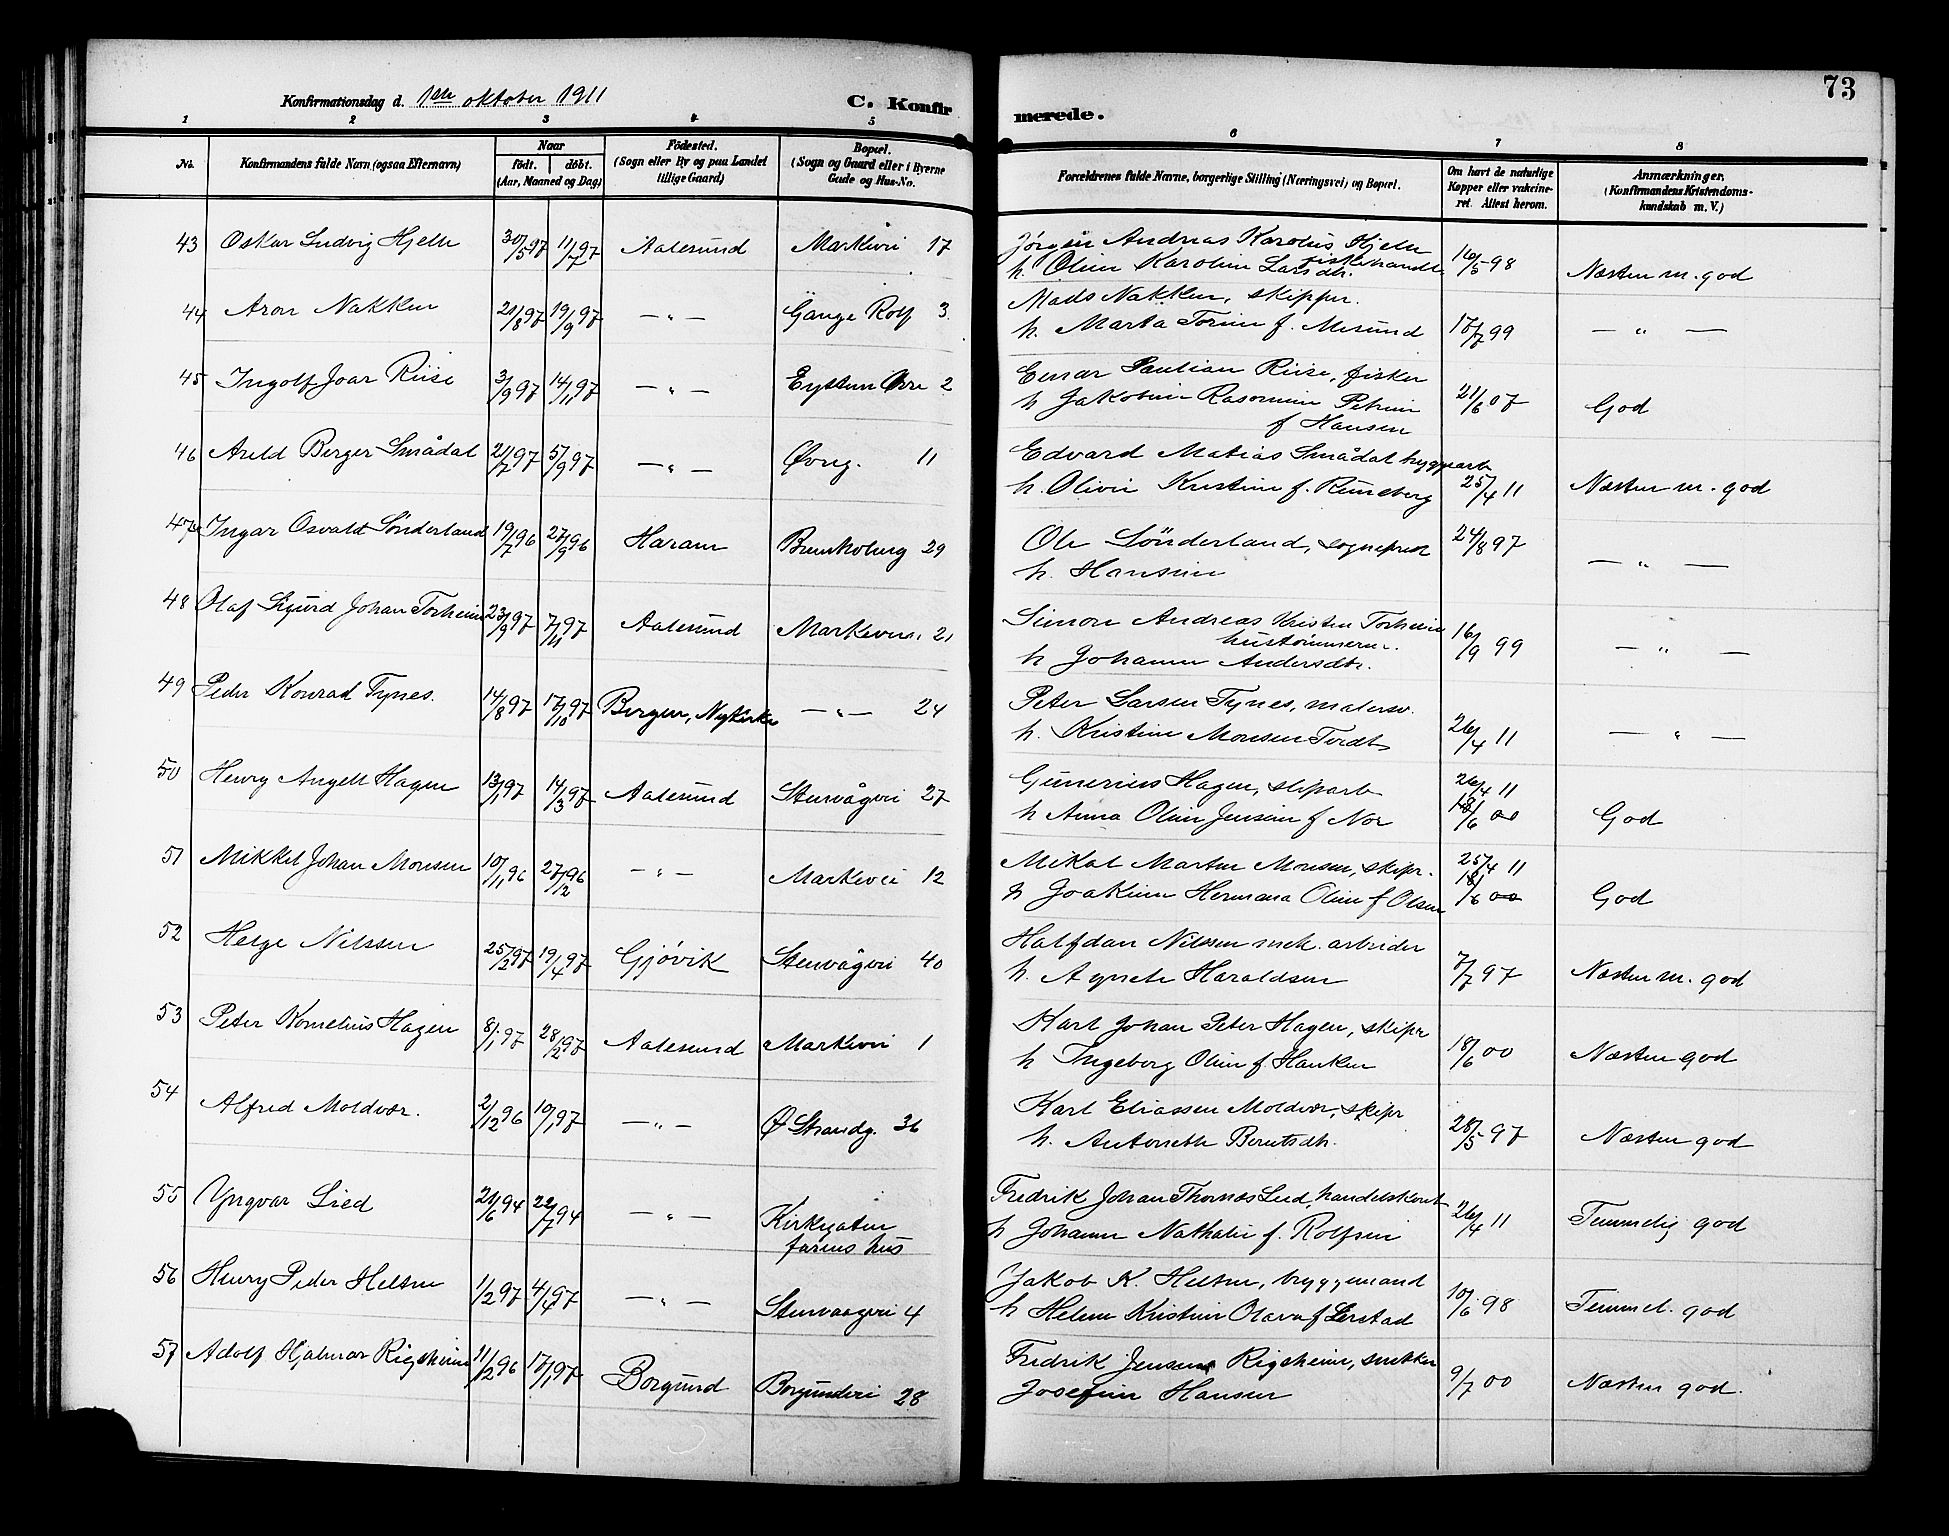 73
Konfirmationsdag d. 1ste oktober 1911 C. Konfirmerede.
1 2 3 4 5 6 7 8
No. Konfirmandens fulde Navn (ogsaa Efternavn) Naar födt. döbt. (Aar, Maaned og Dag) Födested. (Sogn eller By og paa Landet tillige Gaard) Bopæl. (Sogn og Gaard eller i Byerne Gade og Hus-No. Forældrenes fulde Navne, borgerlige Stilling (Næringsvei) og Bopæl. Om havt de naturlige Kopper eller vakcineret. Attest herom. Anmærkninger. (Konfirmandens Kristendomskundskab m. V.)
43 Oskar Ludvig Hjelle 30/5 97 11/7 97 Aalesund Markvei 17 Jørgen Andreas Karolus Hjelle fiskehandl.
h. Oline Karoline Larsdtr. 16/5 98 Næsten m. god
44 Aron Nakken 21/8 97 19/9 97 — " — Gange Rolf 3. Mads Nakken, skipper.
h. Marta Torine f. Misund 17/7 99 — " —
45 Ingolf Joar Riise 3/9 97 14/11 97 — " — Eysten Øvre 2 Einar Paulian Riise, fisker
h Jakobine Rasmine Petrine
f Hansen 21/6 07 God
46 Arild Berger Smådal 21/7 97 5/9 97 — " — Øvreg. 11 Edvard Matias Smådal byggearb
h. Olivie Kristine f. Runeberg 25/4 11 Næsten m. god
47 Ingar Osvald Sönderland 19/7 96 27/9 96 Haram Brunholmg 29 Ole Sönderland, sogneprest
h. Hansine 24/8 97 — " —
48 Olaf Sigurd Johan Torheim 23/9 97 7/11 97 Aalesund Markeven. 21 Simon Andreas Kristen Torheim
hustømmerm.
h Johanne Andersdtr. 16/9 99 — " —
49 Peder Konrad Tynes. 14/8 97 17/10 97 Bergen, Nykirke — " — 24 Peter Larsen Tynes, malersv.
h. Kristine Monsen 26/4 11 — " —
50 Henry Angell Hagen 13/1 97 14/3 97 Aalesund Stenvågvei 27 Gunerius Hagen, sliparb
h Anna Oline Jensine f Nor 26/4 11
18/6 00 God
51 Mikkel Johan Monsen 10/11 96 27/12 96 — " — Markevei 12 Mikal Martin Monsen, skipr.
h Joakime Hermana Oline f Olsen 25/4 11
18/6 00 God
52 Helge Nilssen 25/2 97 19/4 97 Gjøvik Stenvågvei 40 Halfdan Nilssen mek. arbeider
h. Agnete Haraldsen 7/7 97 Næsten m. god
53 Peter Kornelius Hagen 8/1 97 28/2 97 Aalesund Markevei 1 Karl Johan Peter Hagen, skipr
h Ingeborg Oline f. Hanken 18/6 00 Næsten god
54 Alfred Moldvær. 2/12 96 10/1 97 — " — Ø Strandg. 36 Karl Eliassen Moldvær, skipr
h. Antonette Berntsdtr. 28/5 97 Næsten god
55 Yngvar Lied 21/6 94 22/7 94 — " — Kirkegaten
farens hus Fredrik Johan Thomas Lied, handelskont
h Johanne Nathalie f. Rolfsen 26/4 11 Temmelig god
56 Henry Peder Helsen 1/2 97 4/4 97 — " — Stenvaagvei 4 Jakob K. Helsen, bryggemand
h Helene Kristine Olava f Lerstad 10/6 98 Temmel. god
57 Adolf Hjalmar Rigsheim 11/12 96 17/1 97 Borgund Borgundvei 28 Fredrik Jensen Rigsheim, snekker
Josefine Hansen 9/7 00 Næsten god.